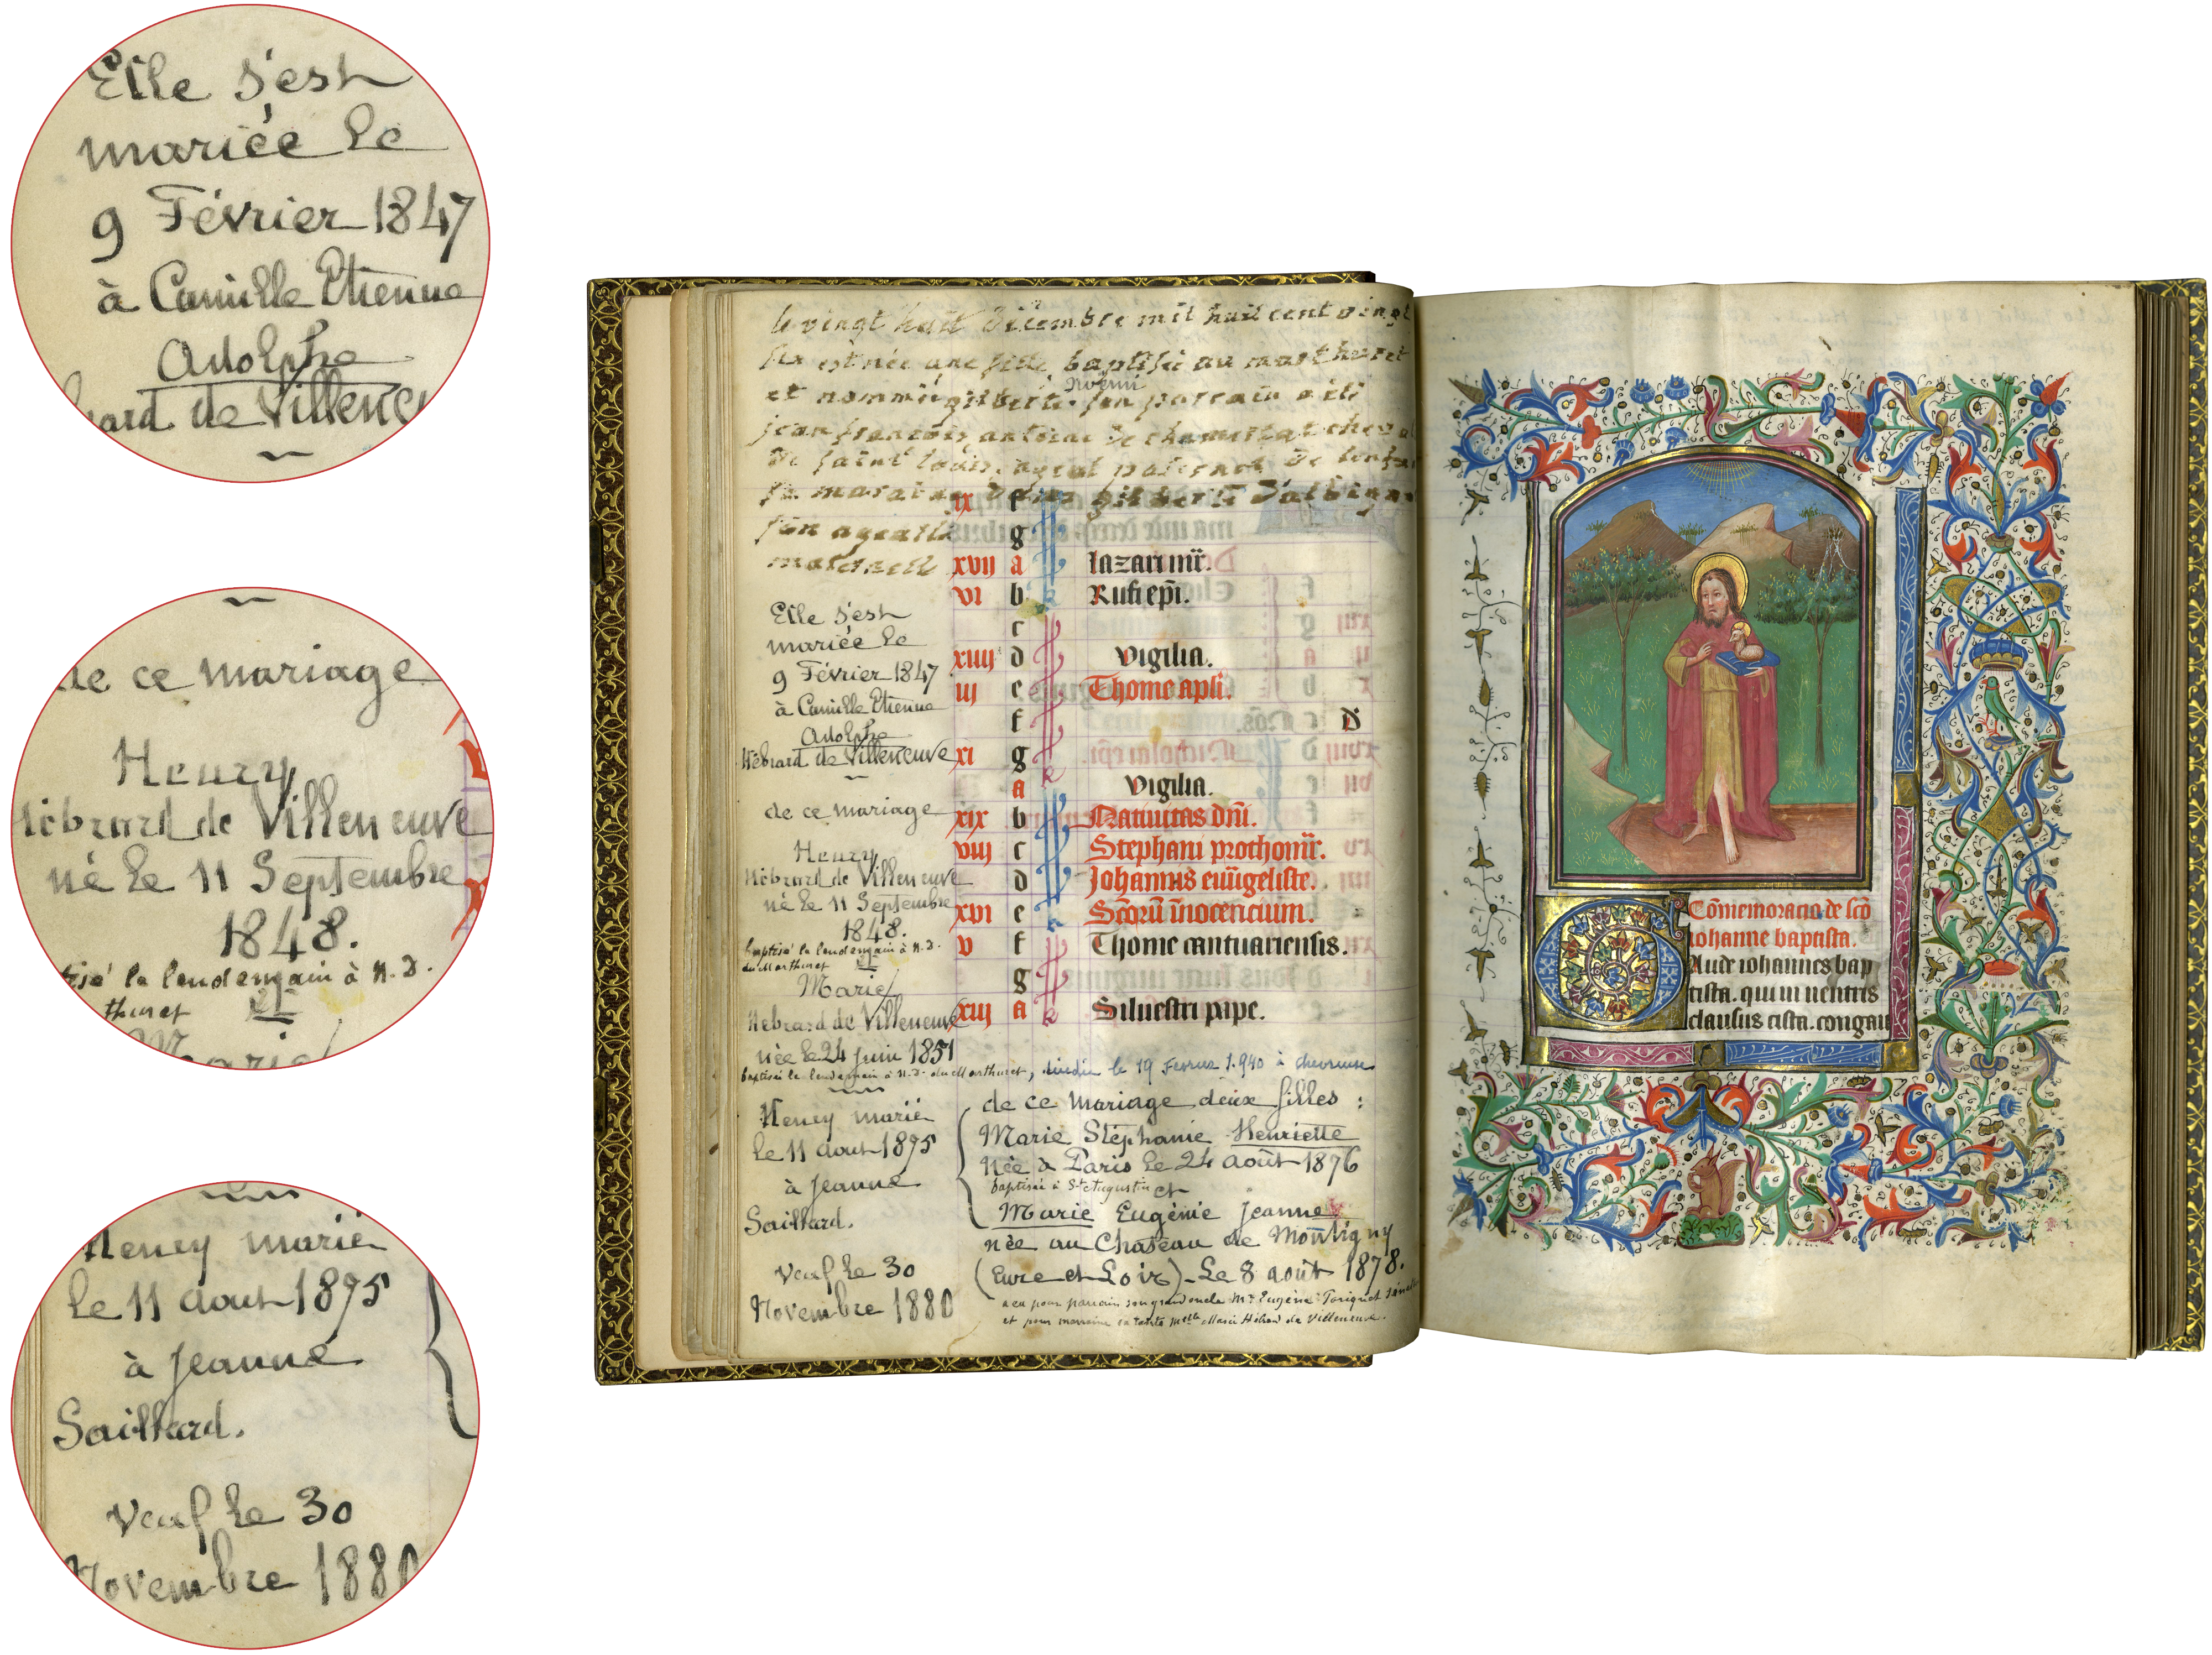 Elle s'est
mariée le
9 Février 1847
à Camille Etienne
Adolphe
de
de ce mariage
Henry
de Villeneuve
né le 11 Septembre
1848.
le lendemain à N.D.
et
Marie
Henry marié
le 11 aout 1875
à Jeanne
Saillard.
Veuf le 30
Novembre 1880
le vingt huit décembre mil huit cent vingt
six est née une fille baptisée au martheret
noémi
et nommée gilberte. son parrain a été
jean françois antoine de
de saint louis. ayeul paternel de
sa maraine gilberte
son ayeulle
maternelle
ix f
g
xvii a lazari mr̄.
vi b Rufi ep̄i.
c
xiiii d Vigilia.
iii e Thome apl̄i.
f D
xi g
a Vigilia.
xix b Natiuitas dn̄i.
viii c Stephani prothom̄r.
d Johannis euāgeliste.
xvi e Sc̄orū inocencium.
v f Thome cantuariensis.
g
xiii a Siluestri pape.
Elle s'est
mariée le
9 Février 1847
à Camille Etienne
Adolphe
Hébrard de Villeneuve
de ce mariage
Henry
Hébrard de Villeneuve
né le 11 Septembre
1848.
baptisé le lendemain à N.D.
du Marthuret et
Marie
Hébrard de Villeneuve
née le 24 juin 1851
baptisée le lendemain à N.D. du Marthuret, le 19 1.940 à chevreuse
Henry marié
le 11 aout 1875
à Jeanne
Saillard.
Veuf le 30
Novembre 1880
de ce mariage deux filles :
Marie Stéphanie Henriette
née à Paris le 24 août 1876
baptisée à St Augustin et
Marie Eugénie Jeanne
née au Château de Montigny
(Eure et Loir) - Le 8 août 1878.
a eu pour parrain son grand oncle Mr Eugène
et pour marraine sa tante Melle Marie Hébrard de Villeneuve.
Cōmemoracio de sc̄o
iohanne baptista.
Gaude iohannes bap
tista. qui in uentris
clausus cista. congau